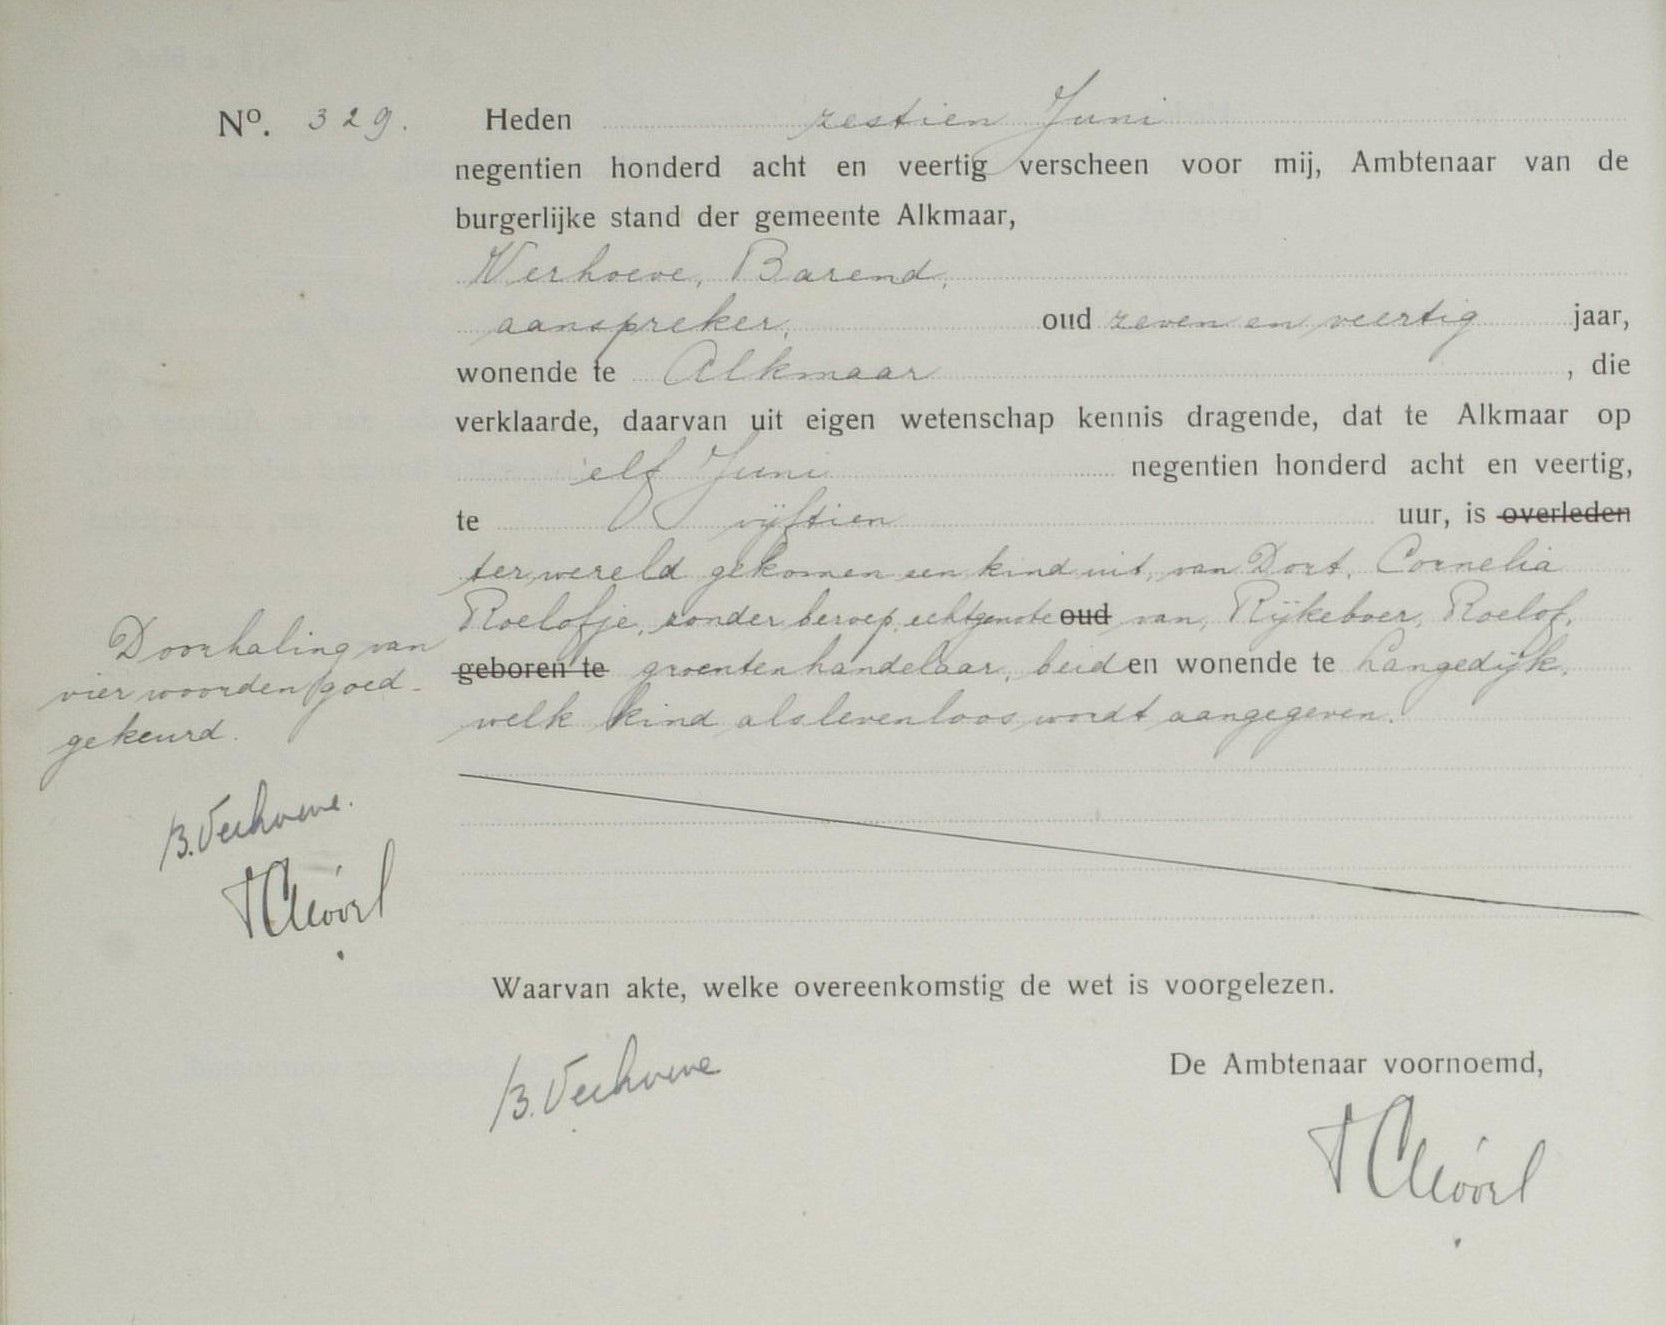 Nº. 329. Heden zestien Juni
negentien honderd acht en veertig verscheen voor mij, Ambtenaar van de
burgerlijke stand der gemeente Alkmaar,
Verhoeve, Barend,
aanspreker, oud zeven en veertig jaar,
wonende te Alkmaar , die
verklaarde, daarvan uit eigen wetenschap kennis dragende, dat te Alkmaar op
elf Juni negentien honderd acht en veertig,
te vijftien uur, is overleden
ter wereld gekomen een kind uit, van Dort, Cornelia
Roelofje, zonder beroep, echtgenote oud van, Rijkeboer, Roelof,
geboren te groentenhandelaar, beiden wonende te Langedijk,
welk kind als levenloos wordt aangegeven.
Doorhaling van
vier woorden goed-
gekeurd.
B. Verhoeve.
Waarvan akte, welke overeenkomstig de wet is voorgelezen.
B. Verhoeve
De Ambtenaar voornoemd,